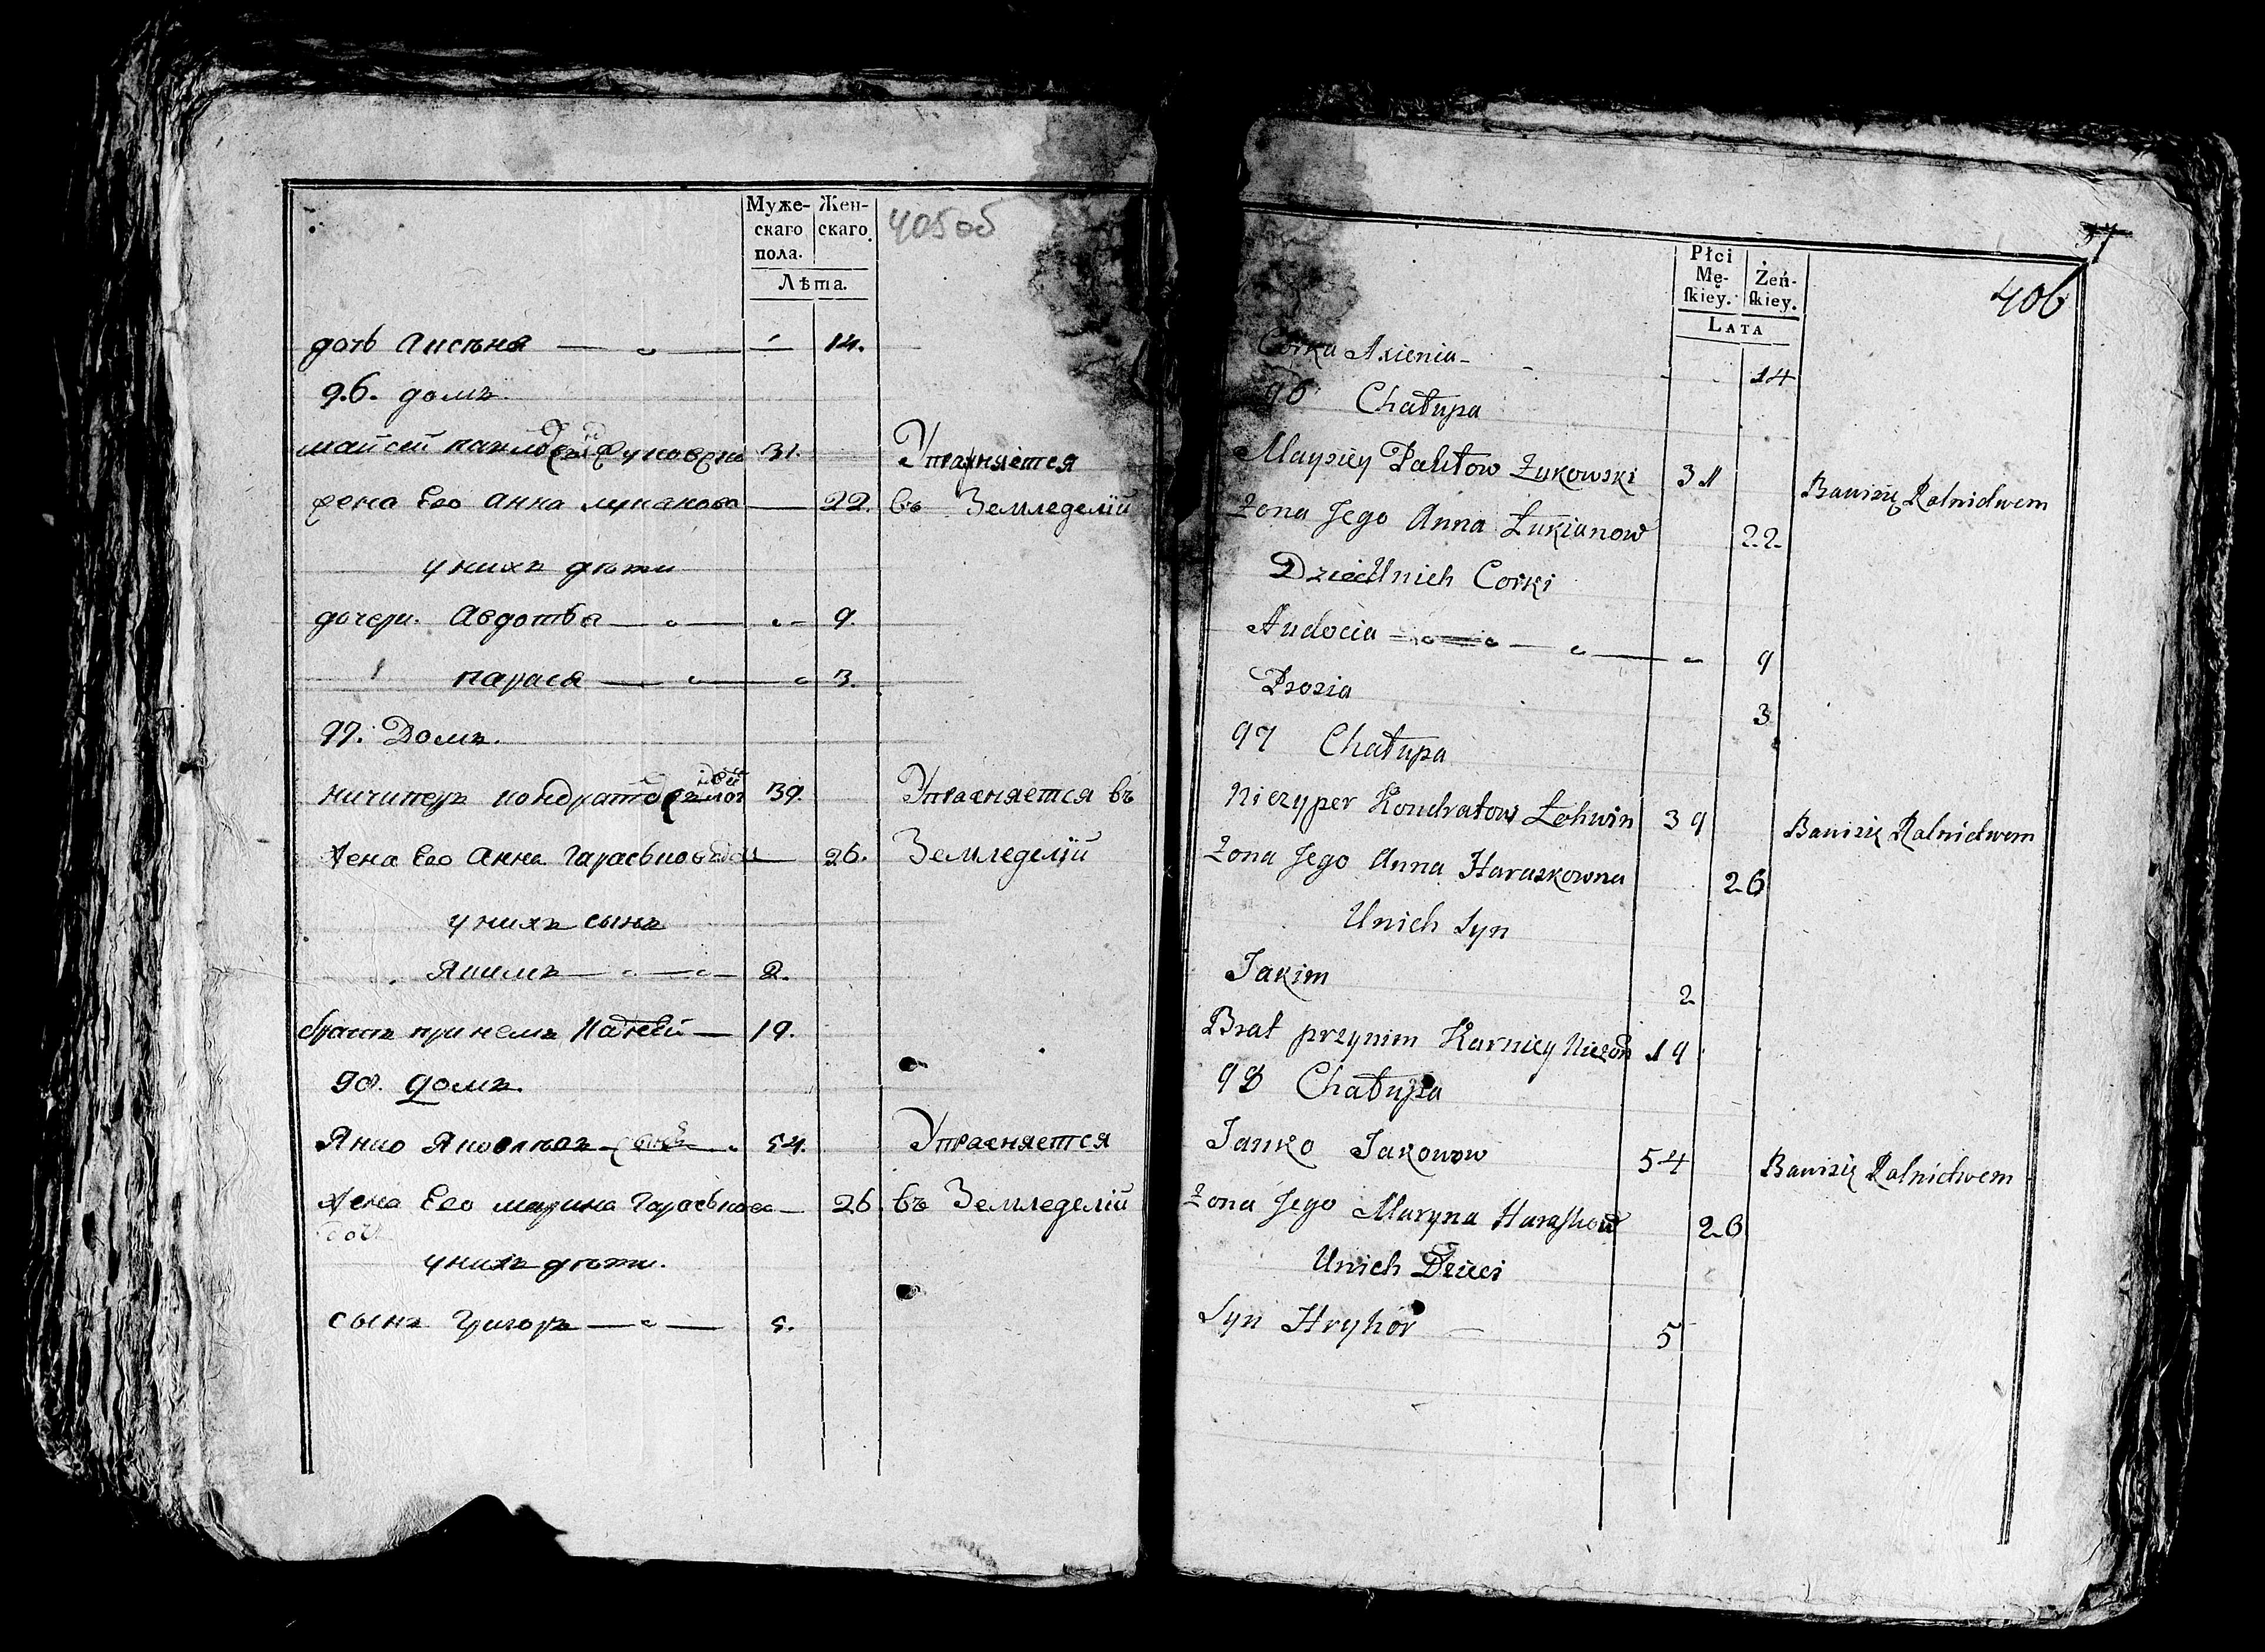 Муже-
скаго
пола.
Жен-
скаго.
Лѣта.
405об
дочь Аксѣня 14.
96. домъ.
майсей 31. Упражняется
жена Его Анна лукянова 22. въ Земледелій
у нихъ дѣти
дочери. Авдотья 9.
парася 3.
97. Домъ.
ничиперъ кондратовъ 39. Упражняется въ
жена Его Анна Гараськова 26. Земледелій
у нихъ сынъ
Якимъ 2.
братъ принемъ 19.
98. домъ.
Янко Яковлевъ 54. Упражняется
жена Его марина Гараськова 26 въ Земледелій
у нихъ дѣти.
сынъ Григоръ 5.
Płci
Mę-
ſkiey.
Żeń-
ſkiey.
LATA
406
Corka Axienia 14
96 Chałupa
Maysiey Żukowski 31 Bawisię Rolnictwem
Żona Jego Anna Łukianow 22
Dzieci Unich Corki
Audocia 9
Prosia 3
97 Chałupa
Niczyper Kondratow Łohwin 39 Bawisię Rolnictwem
Żona Jego Anna Haraskowna 26
Unich Syn
Jakim 2
Brat przynim Karniey 19
98 Chałupa
Janko Jakowow 54 Bawisię Rolnictwem
Żona Jego Maryna Haraſkow 26
Unich Dzieci
Syn Hryhór 5